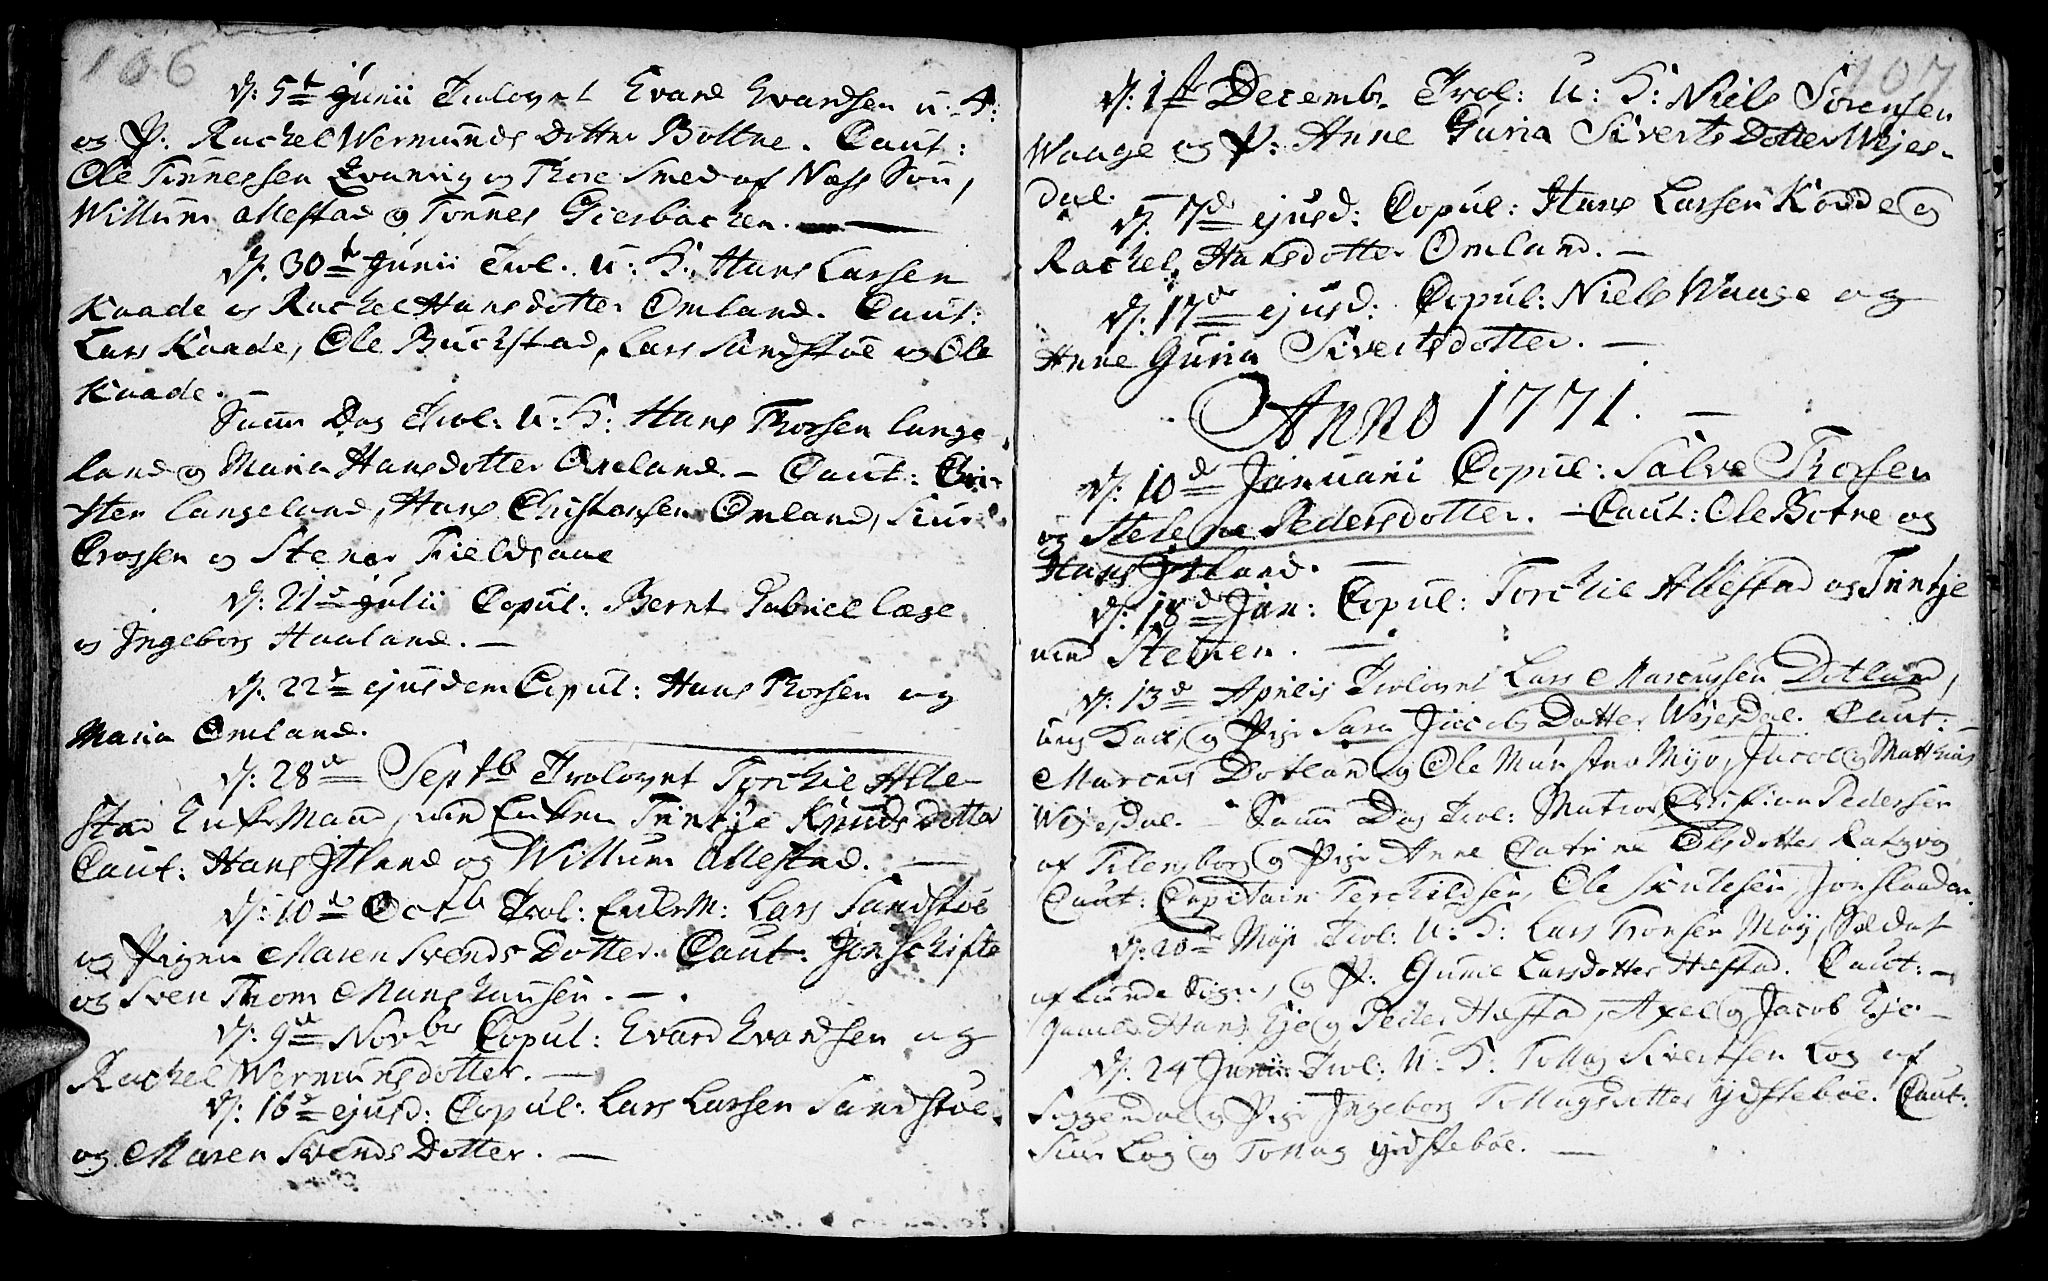 106
d: 5t Junii Trolovet Evard Evardsen u. K:
og P. Rachel Wermunds Dotter Bottne. Caut:
Ole Tönnessen og Thore Smed af Næss Son,
Willum Allestad og Tonnes Giesbachen. —
d: 30t Junii Trol. u: K: Hans Larsen
Kaade og Rachel Hansdotter Omland. Caut:
Lars Kaade, Ole Buchstad, Lars Sandstöe og Ole
Kaade. —
Samm Dag Trol: u: K: Hans Thorsen lange
land og Maria Hansdotter Omland. — Caut: Chri-
sten langeland, Hans Christensen Omland, Siur
Crossen og Stener Fieldsaae
d: 21d Julii Copul: Bernt Gabriel læge
og Ingeborg Haaland. —
d: 22d ejusdem Copul: Hans Thorsen og
Maria Omland.
d: 28d Septb Trolovet Torchil Alle-
stad Enke Mand, med Enken Trintje Knuds Dotter
Caut: Hans Jtland og Willum Allestad. —
d: 10de Octb Trol: EnkeM: Lars Sandstöe
og Pigen Maren Svends Dotter. Caut: Jon Schifte
og Sven Thom Manshausen. —
d: 9d Novbr Copul: Evard Evardsen og
Rachel Wermunsdotter. —
d: 16d ejusd: Copul: Lars Larsen Sandstöe
og Maren Svends Dotter. —
107
d: 1st Decembr Trol: U: K: Niels Sörensen
Waage og P: Anne Guria Siverts Dotter Wejes-
dal. —
d: 7d ejusd: Copul: Hans Larsen Kaade og
Rachel Hansdotter Omland. —
d: 17de ejusd: Copul: Niels Waage og
Anne Guria Sivertsdotter. —
Anno 1771. —
d: 10d Januarii Copul: Salve Thorsen
og Stelene Pedersdotter. — Caut: Ole Botne og
Hans Jtland. —
d: 18d Jan: Copul: Torchil Allestad og Trintje
med Stemen. —
d: 13d Aprilis Trolovet Lars Marcussen Dotland,
ung Karl, og Pige Sara Jacobs Dotter Wejesdal. Caut:
Marcus Dotland og Ole Mönstro Myr, Jacob og Matthias
Wejesdal. — Samm Dag Trol: Christian Pedersen
af og Pige Anne Catrine Olsdotter
Caut: Capitain Terchildsen, Ole
d: 20d May Trol: U: K: Lars Tronsen Moy, Soldat
af Lunde Sogn, og P: Gunil Larsdotter Hæstad. Caut: —
Hans Eje og Peder Hæstad, Axel og Jacob Eje —
d: 24 Junii Trol: U: K: Tollag Sivertsen Log af
Siggendal og Pige Ingeborg Tollagsdotter Ydsteböe. Caut:
Siur Log og Tollag Ydsteböe. —